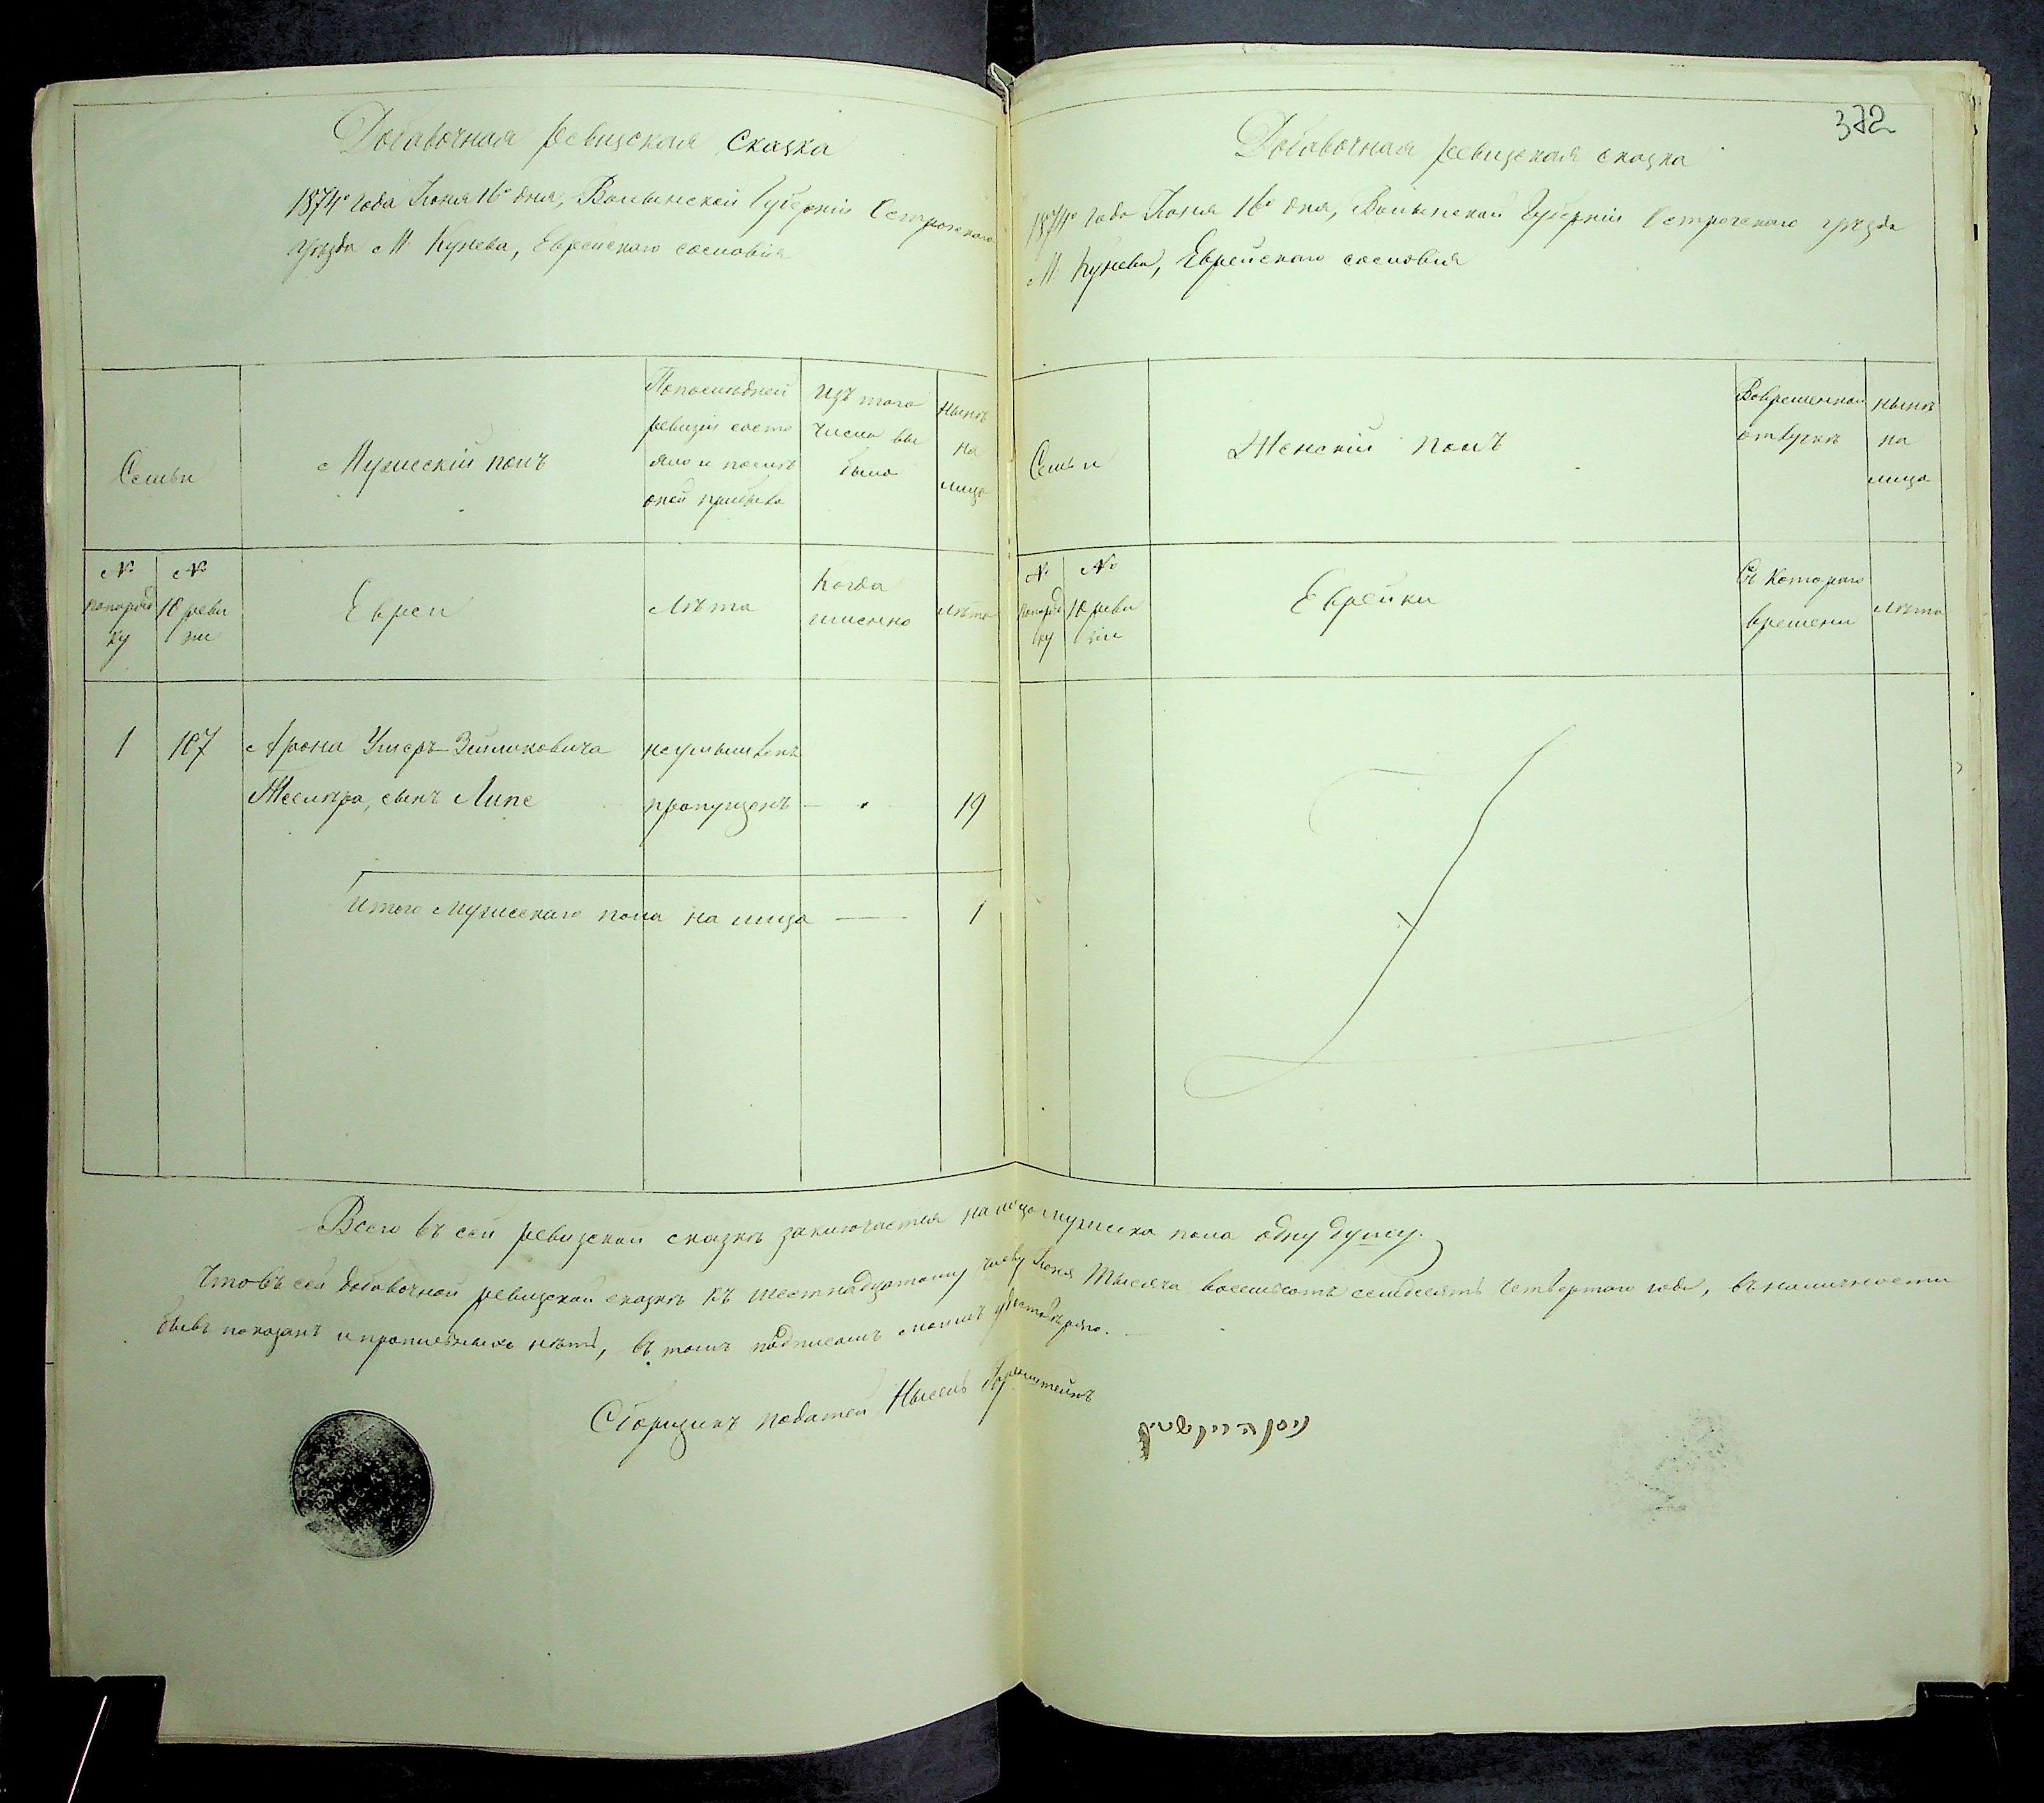 Добавочная ревизская сказка
1874го года Іюня 16го дня, Волынской Губерніи Острожскаго
уѣзда М. Кунева, Еврейскаго сословія
Семьи
Мужескій полъ
По последней
ревизіи состо
яло и послѣ
оной прибыло
Изъ того
числа вы
было
Нынѣ
на
лицо
№
по поряд
ку
№
10 реви
зіи
Евреи
Лѣта
Когда
именно
Лѣта
1 107 Арона Умеръ-Зейликовича неумышленно
сынъ Липе пропущенъ — 19
Итого Мужескаго пола на лицо — 1
372
Добавочная ревизская сказка
1874го года Іюня 16го дня, Волынской Губерніи Острожскаго уѣзда
М. Кунева, Еврейскаго сословія
Семьи
Женскій полъ
Во временной
отлучкѣ
Нынѣ
на
лицо
№
по поряд
ку
№
10 реви
зіи
Еврейки
Съ котораго
времени
Лѣта
Всего въ сей ревизской сказкѣ заключается на лицо мужеска пола одну душу.
Что въ сей добавочной ревизской сказкѣ къ шестнадцатому числу Іюня тысяча восемьсотъ семдесятъ четвертаго года, въ наличности
бывъ показанъ и прописныхъ нѣтъ, въ томъ подписомъ моимъ удостовѣряю.
Сборщикъ податей Нысель